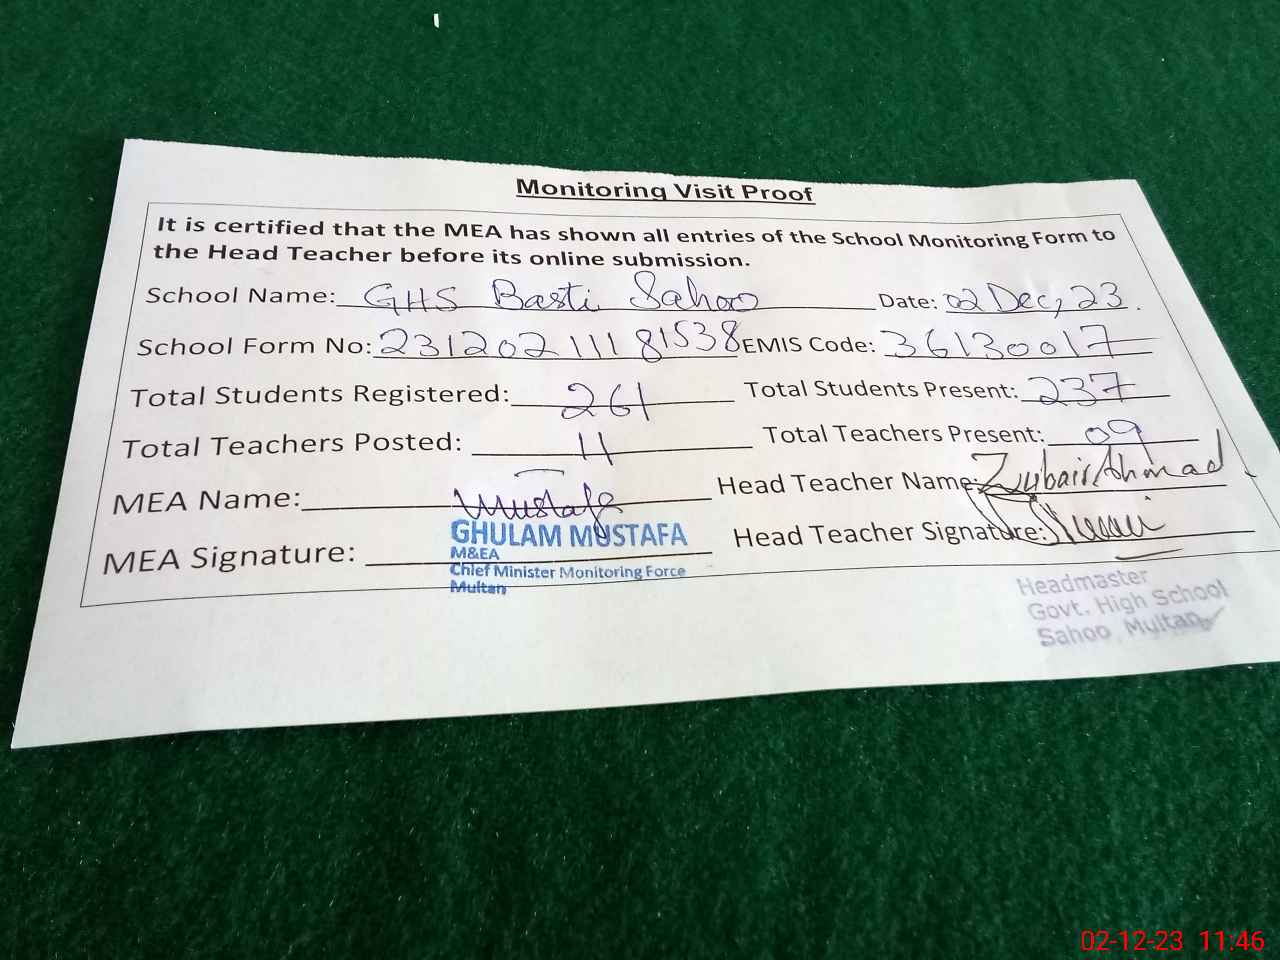 Monitoring Visit Proof
It is certified that the MEA has shown all entries of the School Monitoring Form to
the Head Teacher before its online submission.
School Name: GHS Basti Sahoo Date: 02 Dec, 23.
School Form No: 23120211181538 EMIS Code: 36130017
Total Students Registered: 261 Total Students Present: 237
Total Teachers Posted: 11 Total Teachers Present: 09
MEA Name: Mustafa Head Teacher Name: Zubair Ahmad
MEA Signature: Head Teacher Signature:
GHULAM MUSTAFA
M&EA
Chief Minister Monitoring Force
Multan
Headmaster
Govt. High School
Sahoo Multan
02-12-23 11:46